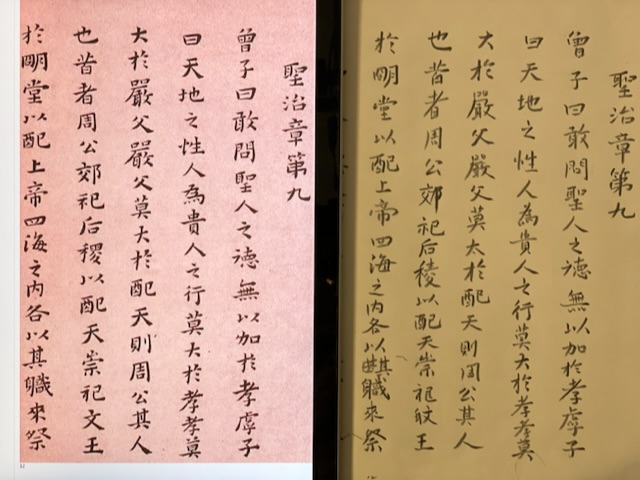 聖治章第九
曾子曰敢問聖人之德無以加於孝虖子
曰天地之性人為貴人之行莫大於孝孝莫
大於嚴父嚴父莫大於配天則周公其人
也昔者周公郊祀后稷以配天崇祀文王
於明堂以配上帝四海之内各以其職來祭
聖治章第九
曾子曰敢問聖人之德無以加於孝虖子
曰天地之性人為貴人之行莫大於孝孝莫
大於嚴父嚴父莫太於配天則周公其人
也昔者周公郊祀后稜以配天崇祀文王
於明堂以配上帝四海之内各以其職來祭